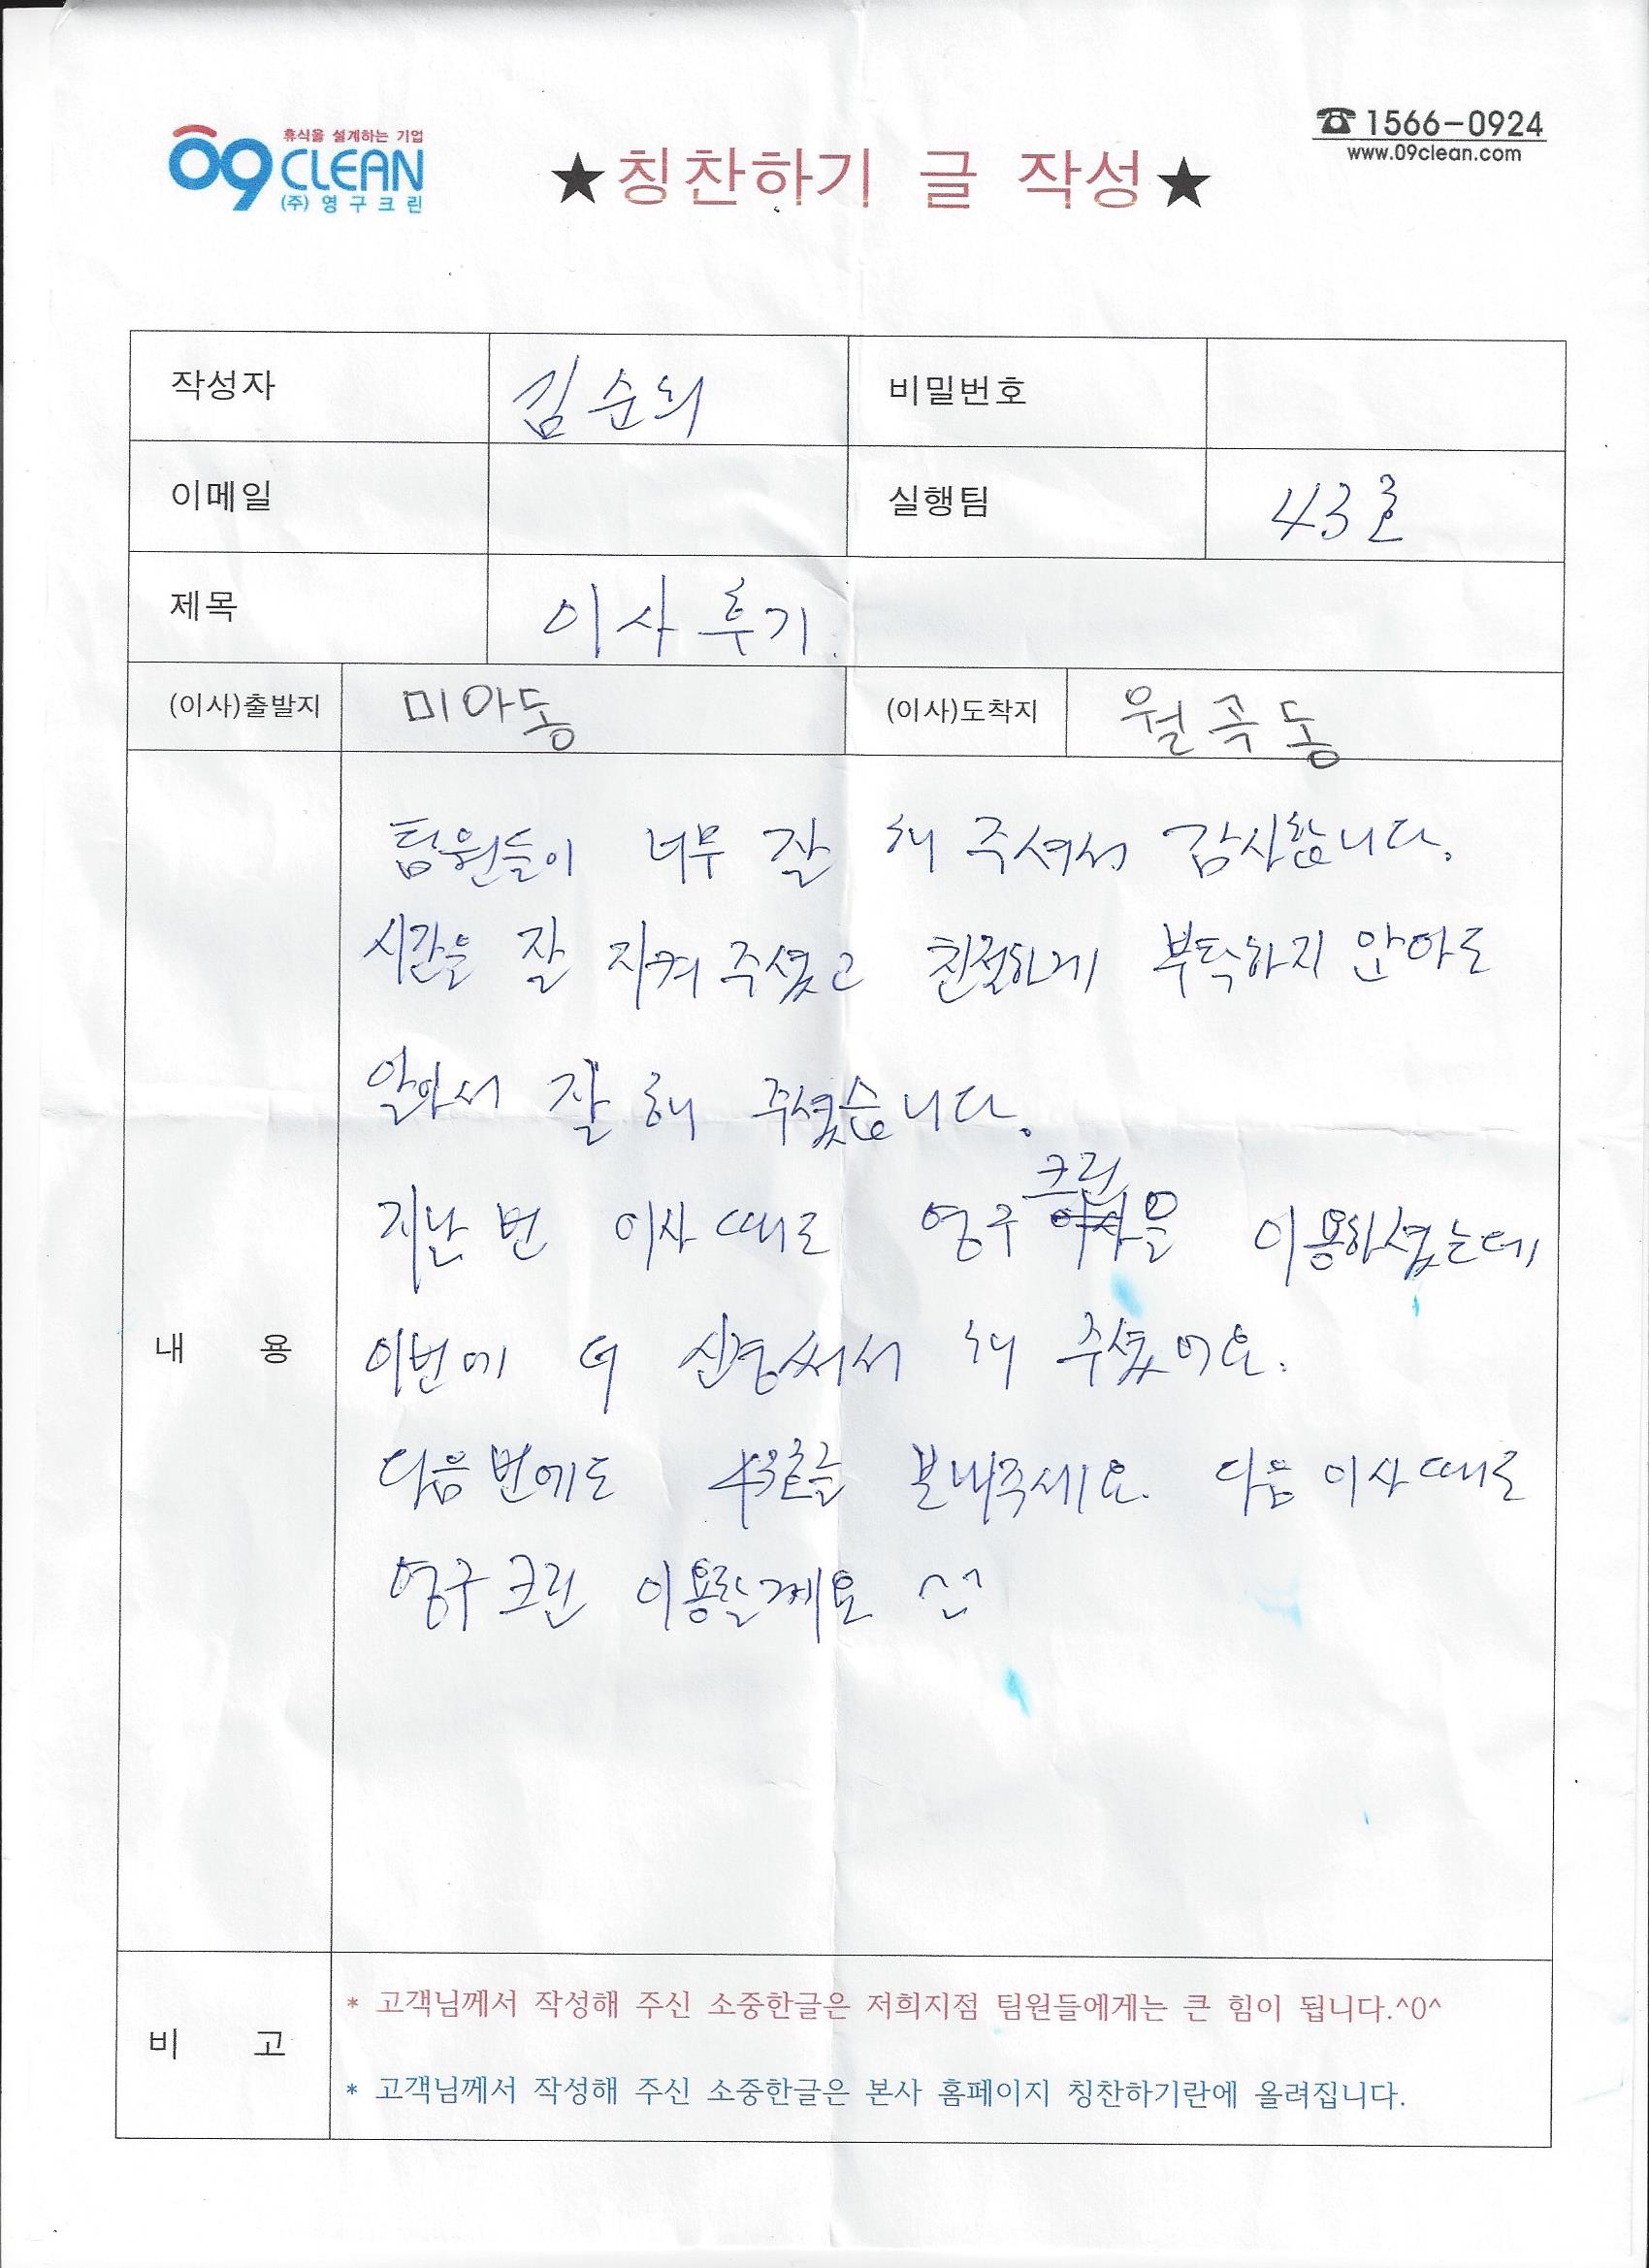 휴식을 설계하는 기업
09 CLEAN
(주)영구크린
★칭찬하기 글 작성★
☎ 1566-0924
www.09clean.com
작성자 김순희 비밀번호
이메일 실행팀 43호
제목 이사 후기.
(이사)출발지 미아동 (이사)도착지 월곡동
내 용
팀원들이 너무 잘 해 주셔서 감사합니다.
시간을 잘 지켜 주셨고 친절하게 부탁하지 않아도
알아서 잘 해 주셨습니다.
크린
지난 번 이사 때도 영구 이사을 이용하셨는데
이번에 더 신경써서 해 주셨어요.
다음번에도 43호를 보내주세요. 다음 이사 때도
영구크린 이용할게요 ^-^
비 고
* 고객님께서 작성해 주신 소중한글은 저희지점 팀원들에게는 큰 힘이 됩니다.^0^
* 고객님께서 작성해 주신 소중한글은 본사 홈페이지 칭찬하기란에 올려집니다.